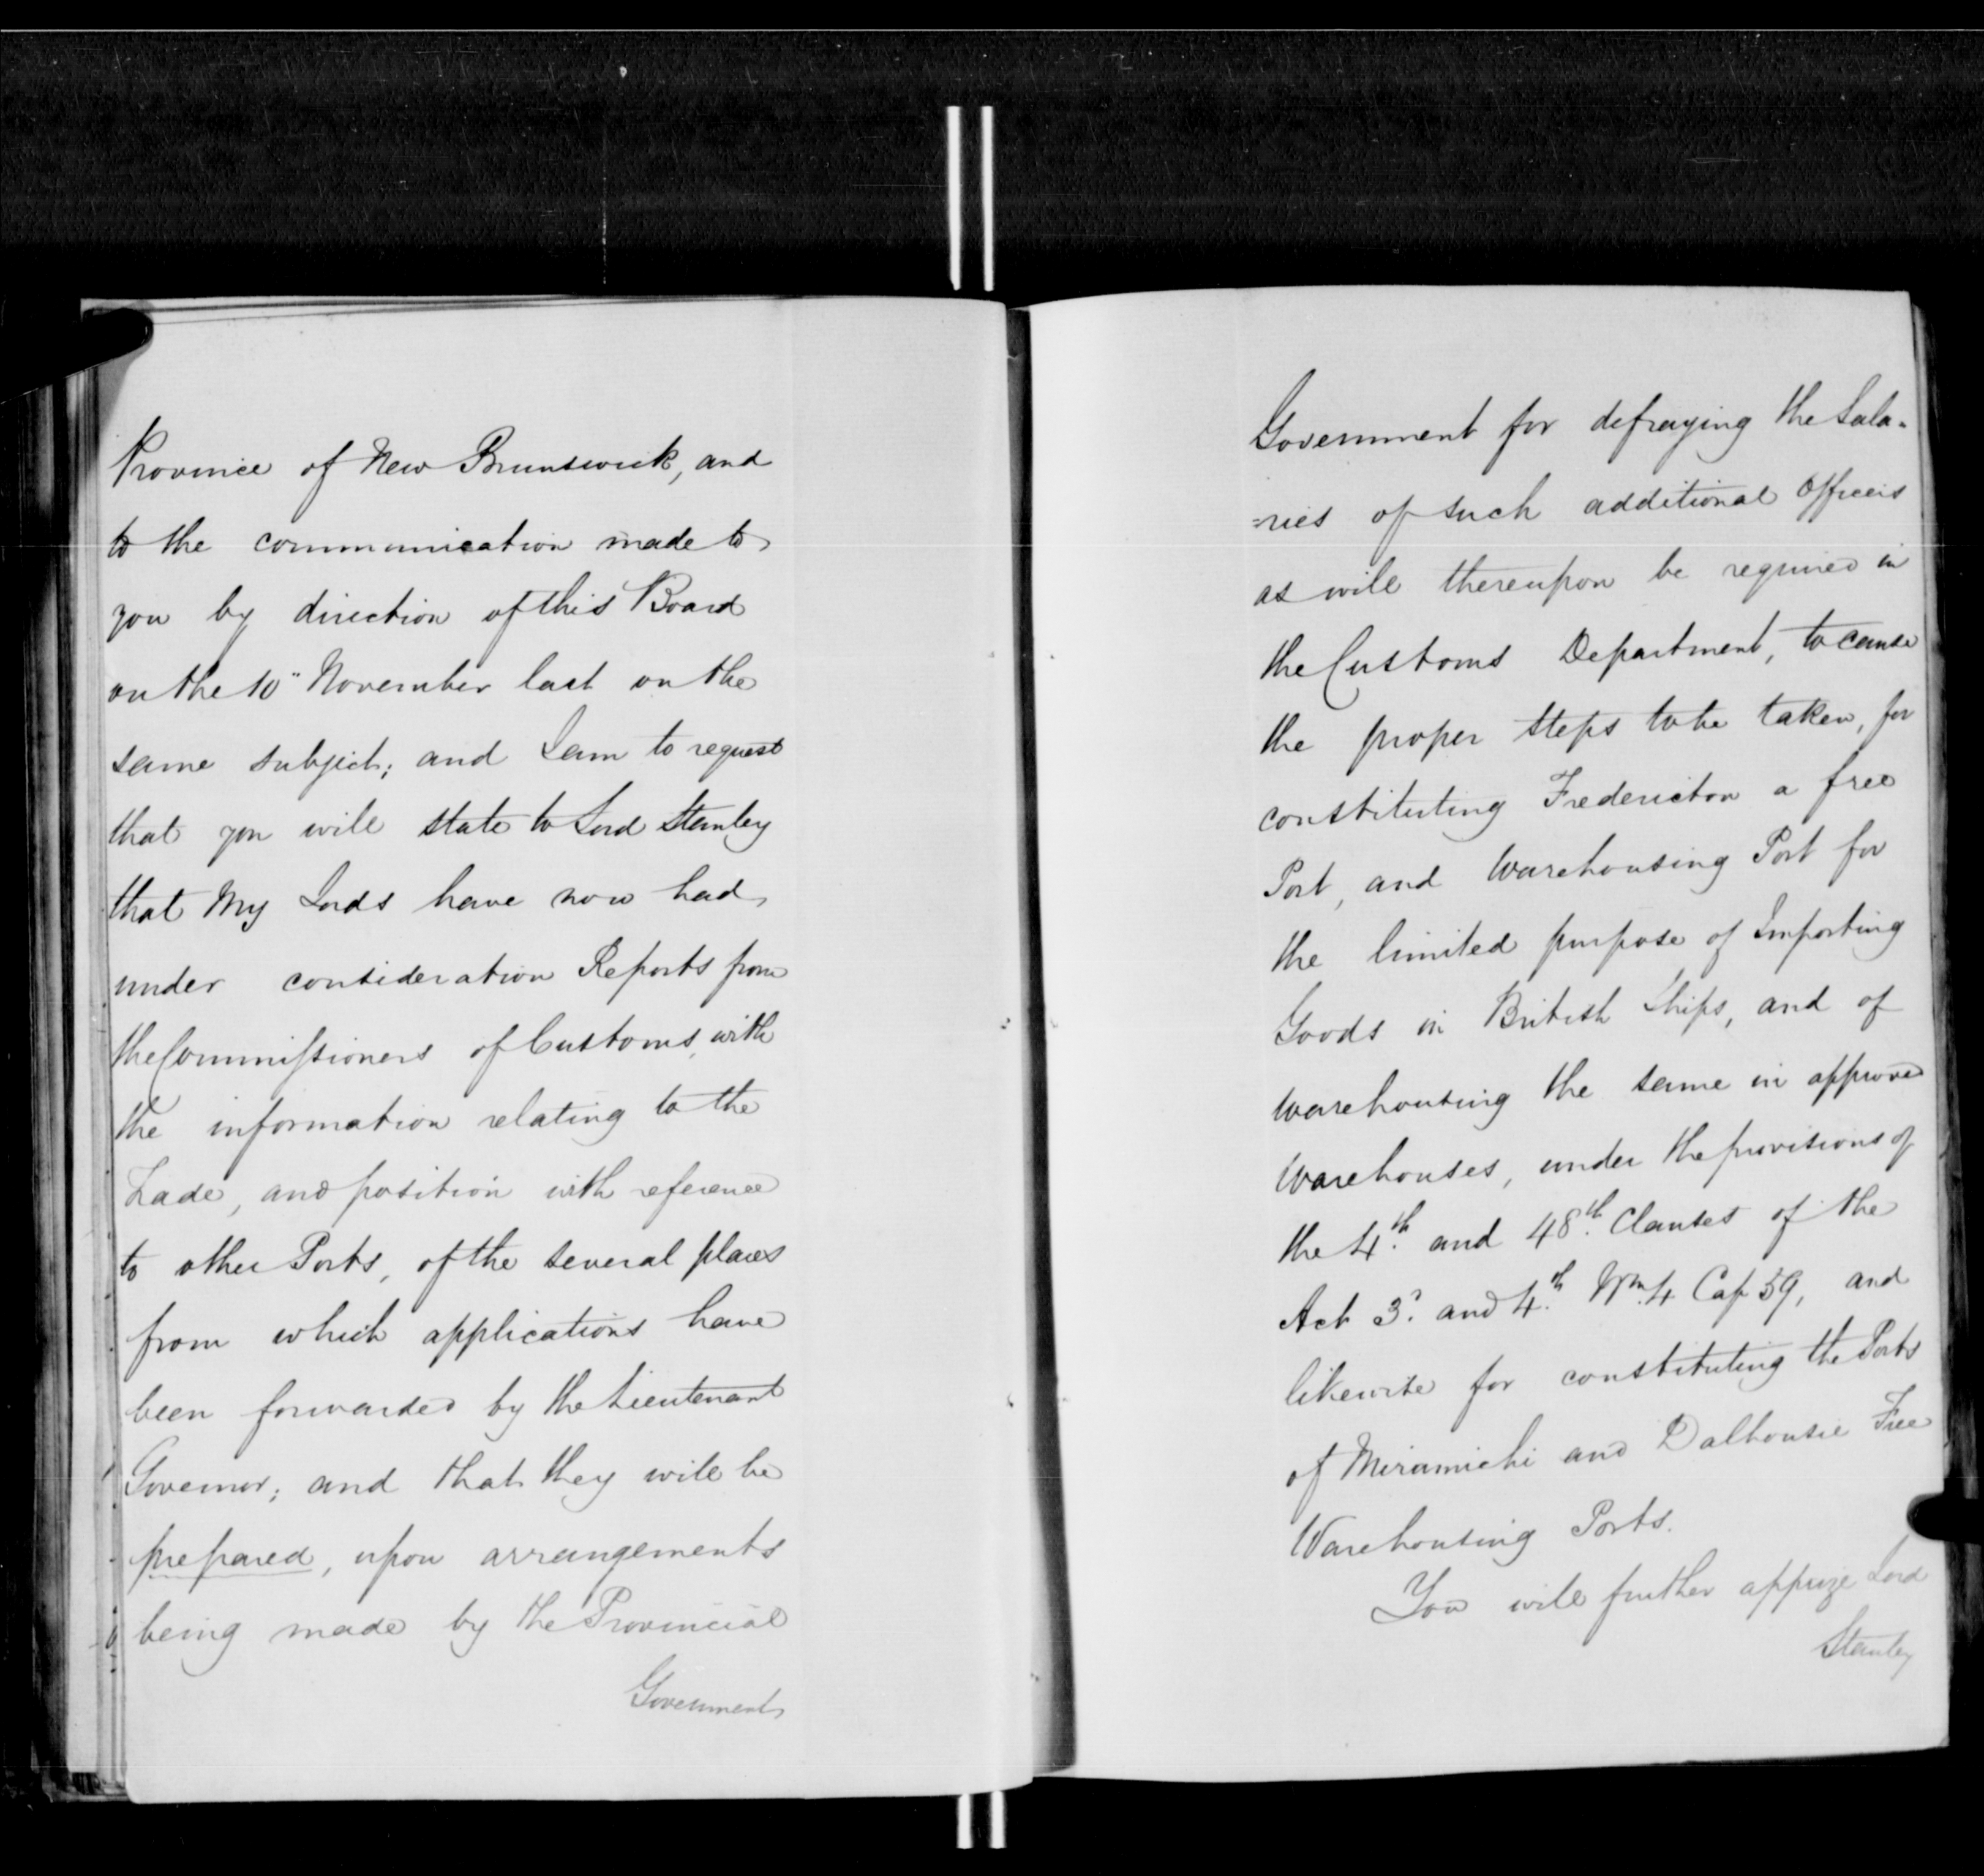 Province of New Brunswick, and
to the communication made to
you by direction of this Board
on the 10" November last on the
same subject; and I am to request
that you will state to Lord Stanley
that My Lords have now had
under consideration Reports from
the Commissioners of Customs, with
the information relating to the
Trade, and position with reference
to other Ports, of the several places
from which applications have
been forwarded by the Lieutenant
Governor; and that they will be
prepared, upon arrangements
being made by the Provincial
Government
Government for defraying the Sala-
=ries of such additional Officers
as will thereupon be required in
the Customs Department, to cause
the proper steps to be taken, for
constituting Fredericton a free
Port, and Warehousing Port for
the limited purpose of Importing
Goods in British Ships, and of
Warehousing the same in approved
Warehouses, under the provisions of
the 4th. and 48th. Clauses of the
Act 3d. and 4th. Wm. 4. Cap 59, and
likewise for constituting the Ports
of Miramichi and Dalhousie Free
Warehousing Ports.
You will further apprize Lord
Stanley